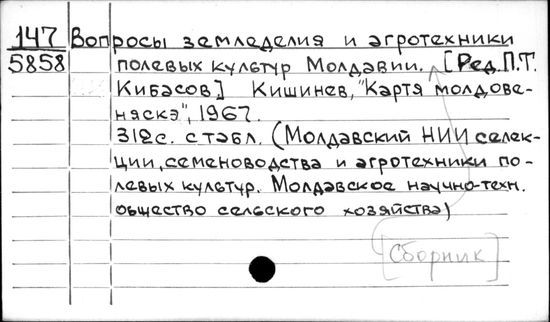 147 Вопросы земледелия и агротехники
5858 полевых культур Молдавии. [Ред. П.Т.
Кибасов] Кишинев, "Картя молдове-
няскэ", 1967.
312с. с табл. (Молдавский НИИ селек-
ции, семеноводства и агротехники по-
левых культур. Молдавское научно-техн.
общество сельского хозяйства)
[Сборник]